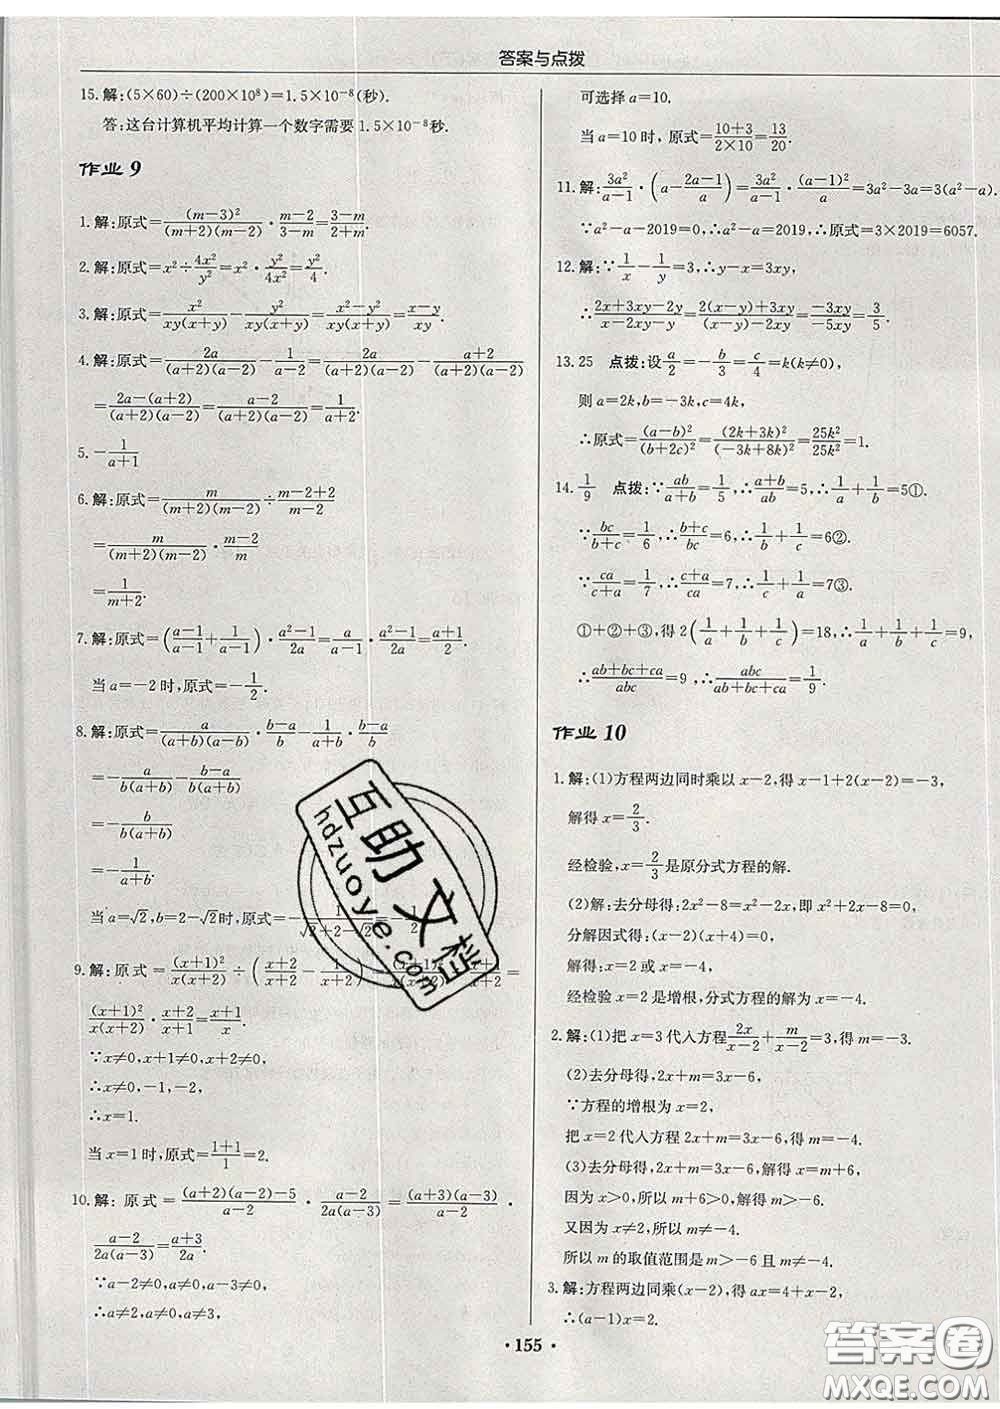 答案与点拨
15.解:(5×60)÷(200×10⁸)=1.5×10⁻⁸(秒).
答:这台计算机平均计算一个数字需要1.5×10⁻⁸秒.
作业9
1.解:原式=(m-3)²/(m+2)(m-2)·(m-2)/(3-m)=(3-m)/(2+m).
2.解:原式=x²÷4x²/y²=x²·y²/4x²=y²/4.
3.解:原式=x²/xy(x+y)-y²/xy(x+y)=(x²-y²)/xy(x+y)=(x-y)/xy.
4.解:原式=2a/(a+2)(a-2)-1/(a-2)=2a/(a+2)(a-2)-(a+2)/(a+2)(a-2)
=(2a-(a+2))/(a+2)(a-2)=(a-2)/(a+2)(a-2)=1/(a+2).
5.-1/(a+1)
6.解:原式=m/(m+2)(m-2)÷(m-2+2)/(m-2)
=m/(m+2)(m-2)·(m-2)/m
=1/(m+2).
7.解:原式=((a-1)/(a-1)+1/(a-1))·(a²-1)/2a=a/(a-1)·(a²-1)/2a=(a+1)/2.
当a=-2时,原式=-1/2.
8.解:原式=a/(a+b)(a-b)·(b-a)/b-1/(a+b)·(b-a)/b
=-a/b(a+b)-(b-a)/b(a+b)
=-b/b(a+b)
=-1/(a+b).
当a=√2,b=2-√2时,原式=-1/(√2+2-√2)=-1/2.
9.解:原式=(x+1)²/x(x+2)÷((x+2)/(x+2)-1/(x+2))=(x+1)²/x(x+2)÷=
(x+1)²/x(x+2)·(x+2)/(x+1)=(x+1)/x.
∵x≠0,x+1≠0,x+2≠0,
∴x≠0,-1,-2,
∴x=1.
当x=1时,原式=(1+1)/1=2.
10.解:原式=((a+2)(a-2)-5)/(a-2)·(a-2)/2a(a-3)=(a+3)(a-3)/(a-2)·
(a-2)/2a(a-3)=(a+3)/2a.
∵a-2≠0,a≠0,a-3≠0,
∴a≠2,a≠0,a≠3,
可选择a=10.
当a=10时,原式=(10+3)/(2×10)=13/20.
11.解:3a²/(a-1)·(a-(2a-1)/a)=3a²/(a-1)·(a-1)²/a=3a²-3a=3(a²-a).
∵a²-a-2019=0,∴a²-a=2019,∴原式=3×2019=6057.
12.解:∵1/x-1/y=3,∴y-x=3xy,
∴(2x+3xy-2y)/(x-2xy-y)=(2(x-y)+3xy)/((x-y)-2xy)=-3xy/-5xy=3/5.
13.25 点拨:设a/2=-b/3=c/4=k(k≠0),
则a=2k,b=-3k,c=4k,
∴原式=(a-b)²/(b+2c)²=(2k+3k)²/(-3k+8k)²=25k²/25k²=1.
14.1/9 点拨:∵ab/(a+b)=1/5,∴(a+b)/ab=5,∴1/a+1/b=5①.
∵bc/(b+c)=1/6,∴(b+c)/bc=6,∴1/b+1/c=6②.
∵ca/(c+a)=1/7,∴(c+a)/ca=7,∴1/c+1/a=7③.
①+②+③,得2(1/a+1/b+1/c)=18,∴1/a+1/b+1/c=9,
∴(ab+bc+ca)/abc=9,∴abc/(ab+bc+ca)=1/9.
作业10
1.解:(1)方程两边同时乘以x-2,得x-1+2(x-2)=-3,
解得x=2/3.
经检验,x=2/3是原分式方程的解.
(2)解:去分母得:2x²-8=x²-2x,即x²+2x-8=0,
分解因式得:(x-2)(x+4)=0,
解得:x=2或x=-4,
经检验x=2是增根,分式方程的解为x=-4.
2.解:(1)把x=3代入方程2x/(x-2)+m/(x-2)=3,得m=-3.
(2)去分母得,2x+m=3x-6,
∵方程的增根为x=2,
把x=2代入方程2x+m=3x-6,得m=-4.
(3)去分母得,2x+m=3x-6,解得x=m+6,
因为x>0,所以m+6>0,解得m>-6.
又因为x≠2,所以m≠-4.
所以m的取值范围是m>-6且m≠-4.
3.解:方程两边同乘(x-2),得ax=4+x-2,
∴(a-1)x=2.
·155·
互助文档
hdzuoye.com
答案圈
MXQE.COM